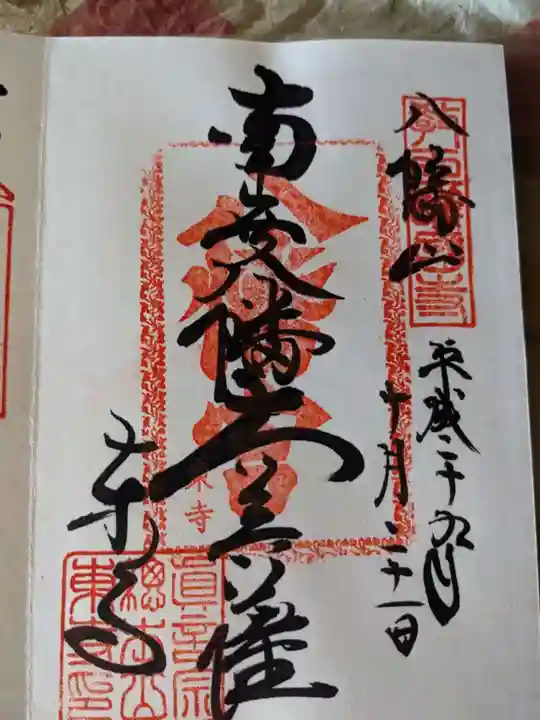 八幡山
平成二十九年
十月二十一日
南無八幡大菩薩
東寺
八幡大菩薩
東寺
真言宗
總本山
東寺印